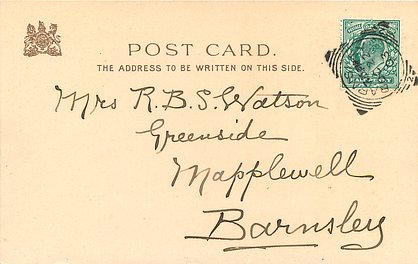 POST CARD.
THE ADDRESS TO BE WRITTEN ON THIS SIDE.
Mrs R.B.S. Watson
Greenside
Mapplewell
Barnsley